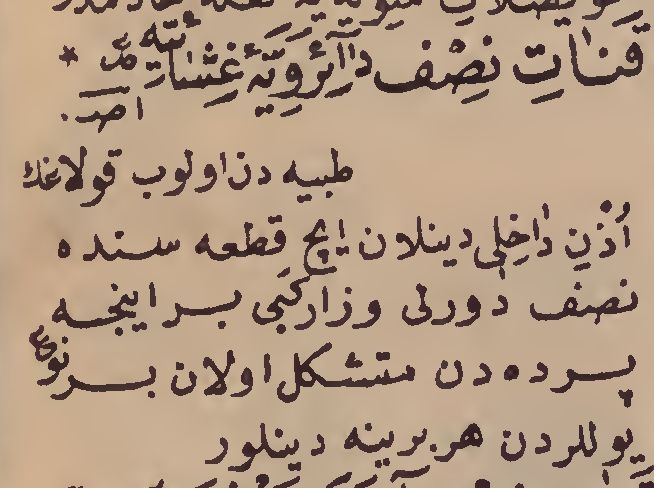 قناتِ نِصْف دٰٓائِرَوِيَّۀِ غِشٰائيّه مث *
اصـ.
طبيه دن اولوب قولاغڭ
اُذْنِ دٰاخِلِى دينلان ايچ قطعه سنده
نصف دورلى وزاركبى بر اينجه
پرده دن متشكل اولان بر نوع
يوللردن هر برينه دينلور